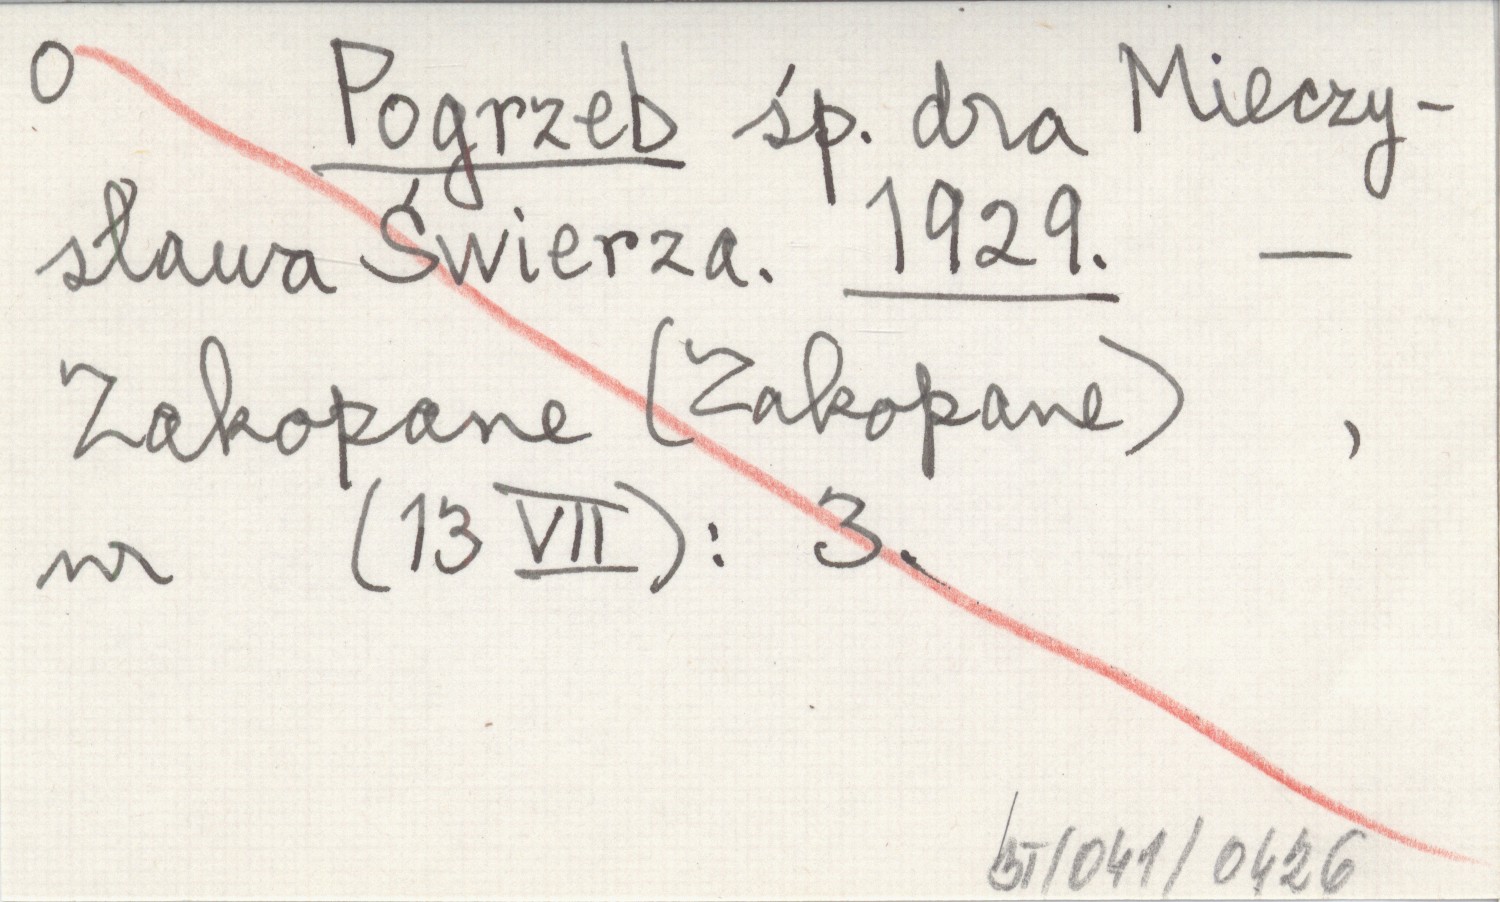 0 Pogrzeb śp. dra Mieczy-
sława Świerza. 1929. —
Zakopane (Zakopane) ,
nr (13 VII): 3.
BT/041/0426